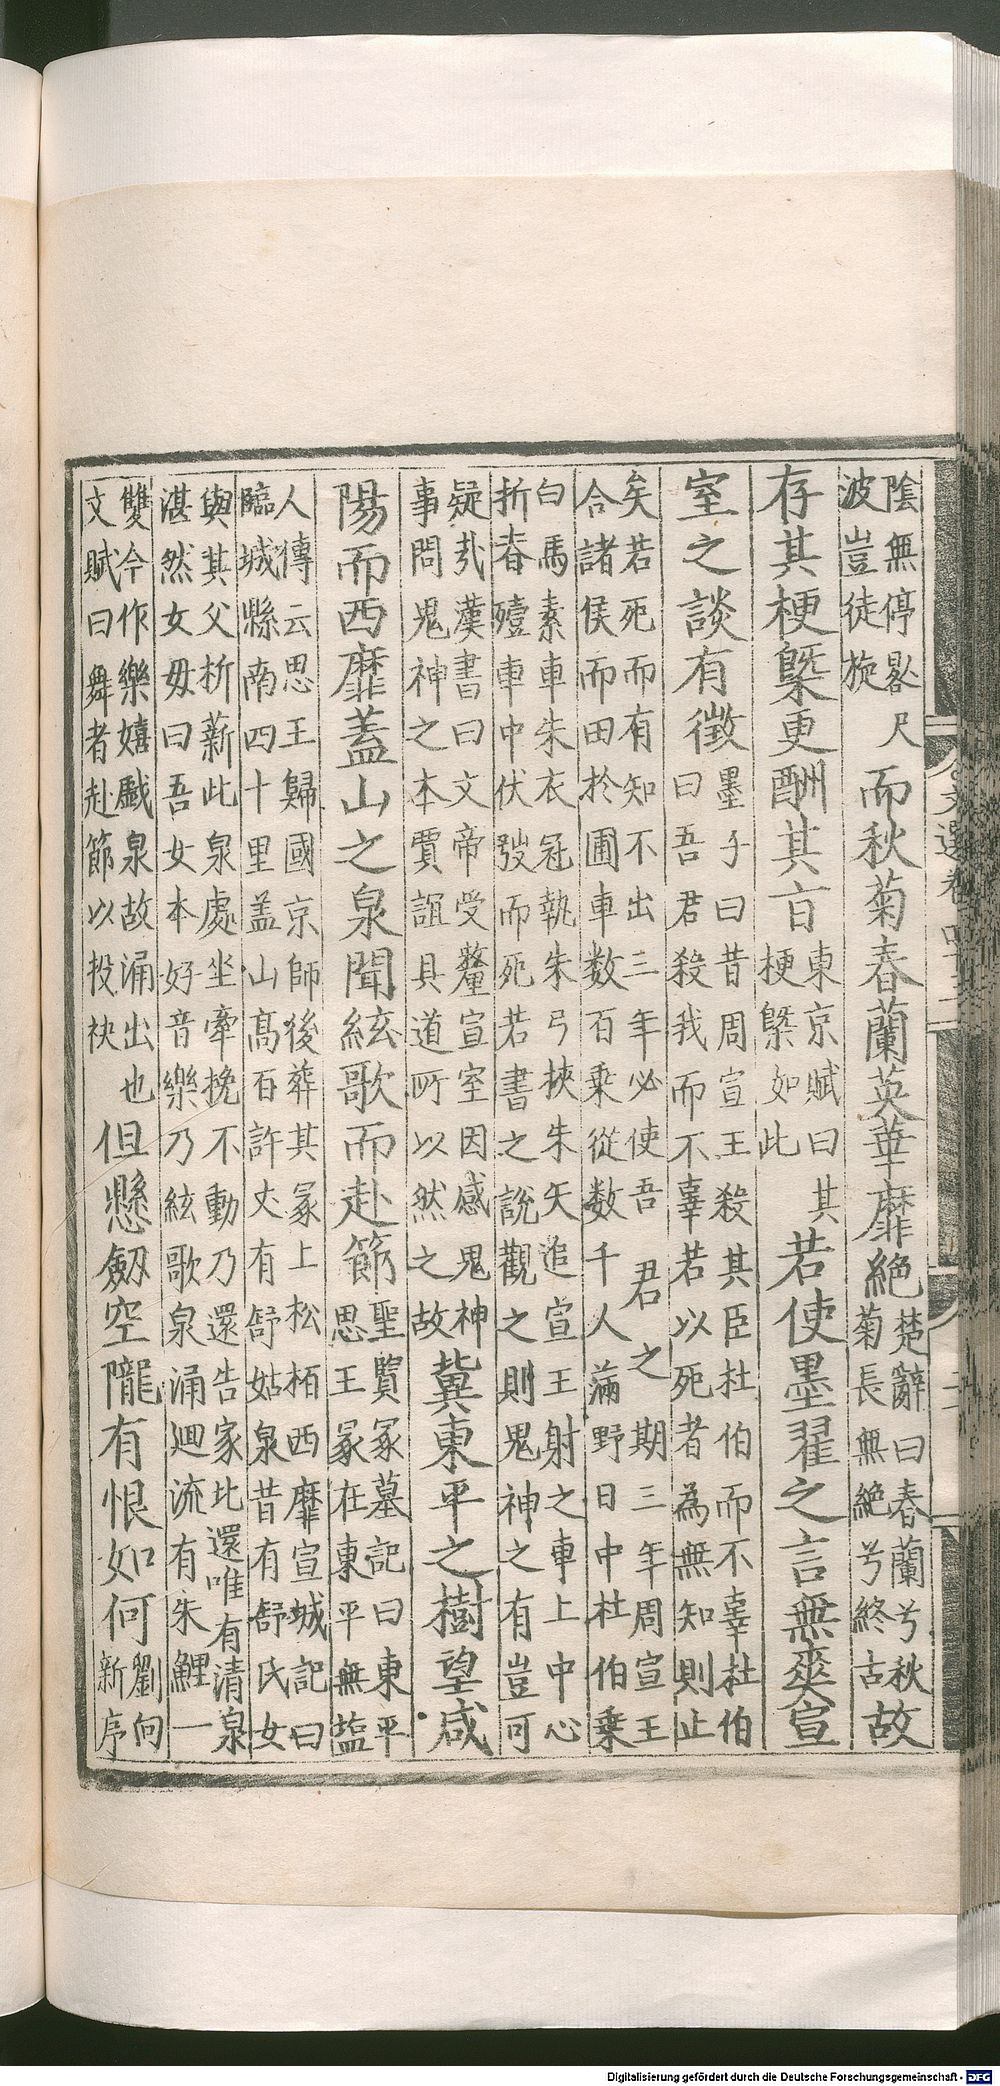 文選卷四十三
陰無停晷尺波豈徒旋而秋菊春蘭英華靡絕楚辭曰春蘭兮秋菊長無絕兮終古故
存其梗槩更酬其旨東京賦曰其梗槩如此若使墨翟之言無爽宣
室之談有徵墨子曰昔周宣王殺其臣杜伯而不辜杜伯曰吾君殺我而不辜若以死者為無知則止
矣若死而有知不出三年必使吾君之期三年周宣王合諸侯而田於圃車数百乗從数千人滿野日中杜伯乗
白馬素車朱衣冠執朱弓挾朱矢追宣王射之車上中心折脊殪車中伏弢而死若書之說觀之則鬼神之有豈可
疑㢤漢書曰文帝受釐宣室因感鬼神事問鬼神之本賈誼具道所以然之故冀東平之樹望咸
陽而西靡蓋山之泉聞絃歌而赴節聖賢冢墓記曰東平思王冢在東平無塩
人傳云思王歸國京師後葬其冢上松栢西靡宣城記曰臨城縣南四十里蓋山高百許丈有舒姑泉昔有舒氏女
與其父析薪此泉處坐牽挽不動乃還告家比還唯有清泉湛然女母曰吾女本好音樂乃絃歌泉涌迴流有朱鯉一
雙今作樂嬉戲泉故涌出也文賦曰舞者赴節以投袂但懸劒空隴有恨如何劉向新序
Digitalisierung gefördert durch die Deutsche Forschungsgemeinschaft - DFG